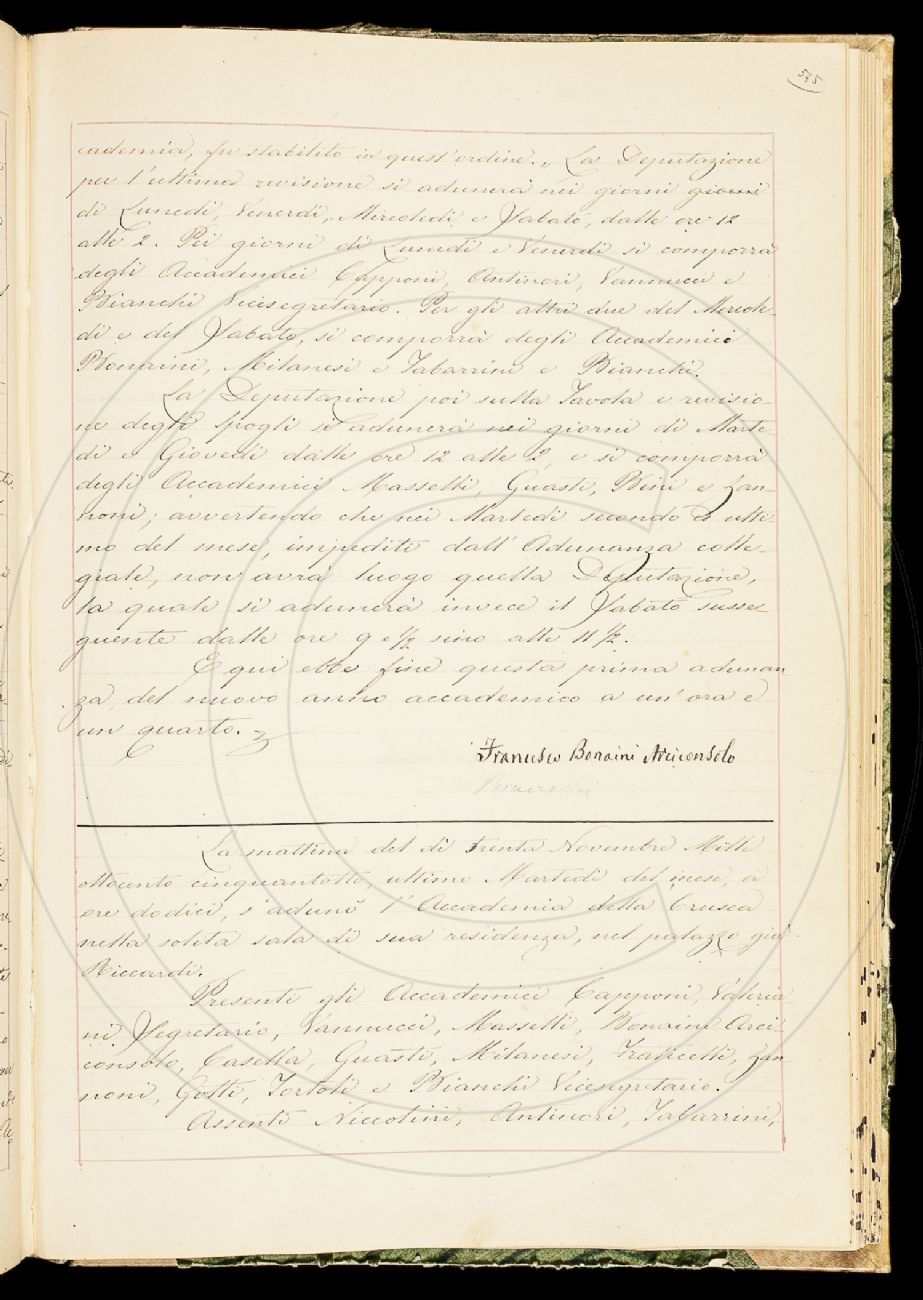 545
cademia, fu stabilito in quest'ordine. „ La Deputazione
per l'ultima revisione si adunerà nei giorni giorni
di Lunedì, Venerdì, Mercoledì e Sabato, dalle ore 12
alle 2. Pei giorni di Lunedì e Venerdì si comporrà
degli Accademici Capponi, Antinori, Vannucci e
Bianchi Vicesegretario. Per gli altri due del Mercole-
dì e del Sabato, si comporrà degli Accademici
Bonaini, Milanesi e Tabarrini e Bianchi.
La Deputazione poi sulla Tavola e revisio-
ne degli Spogli si adunerà nei giorni di Marte-
dì e Giovedì dalle ore 12 alle 2, e si comporrà
degli Accademici Masselli, Guasti, Bini e Zan-
noni; avvertendo che nei Martedì secondo e ulti-
mo del mese, impediti dall'Adunanza colle-
giale, non avrà luogo quella Deputazione,
la quale si adunerà invece il Sabato susse-
guente dalle ore 9 e 1/2 sino alle 11 1/2.
E qui ebbe fine questa prima adunan
za, del nuovo anno accademico a un'ora e
un quarto.
Francesco Bonaini Arciconsolo
Bianchi
La mattina del dì trenta Novembre Mille
ottocento cinquantotto, ultimo Martedì del mese, a
ore dodici, s'adunò l'Accademia della Crusca
nella solita sala di sua residenza, nel palazzo già
Riccardi.
Presenti gli Accademici Capponi, Valeria-
ni Segretario, Vannucci, Masselli, Bonaini Arci-
consolo, Casella, Guasti, Milanesi, Fraticelli, Zan
noni, Gotti, Tortoli e Bianchi Vicesegretario.
Assenti Niccolini, Antinori, Tabarrini,